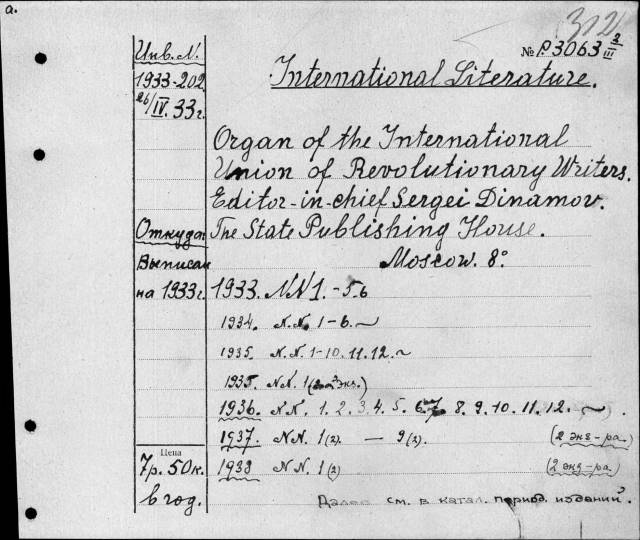 a.
312
№ P.3063 3/III
Инв. N.
1933-202
26/IV. 33 г.
International Literature.
Organ of the International
Union of Revolutionary Writers.
Editor-in-chief Sergei Dinamov.
Откуда:
The State Publishing House.
Moscow. 8°
Выписан
на 1933 г.
1933. NN 1. -5.6
1934. N.N. 1-6. ~
1935. N.N. 1-10. 11. 12. ~
1935. N.N. 1 ( экз.)
1936. N.N. 1. 2. 3. 4. 5. 6. 7. 8. 9. 10. 11. 12. ~ .
1937. N.N. 1 (2). — 9 (2). (2 экз-ра.)
1938 N N. 1 (2) (2 экз-ра.)
Цена
7р. 50 к.
в год.
Далее см. в катал. период. изданий.